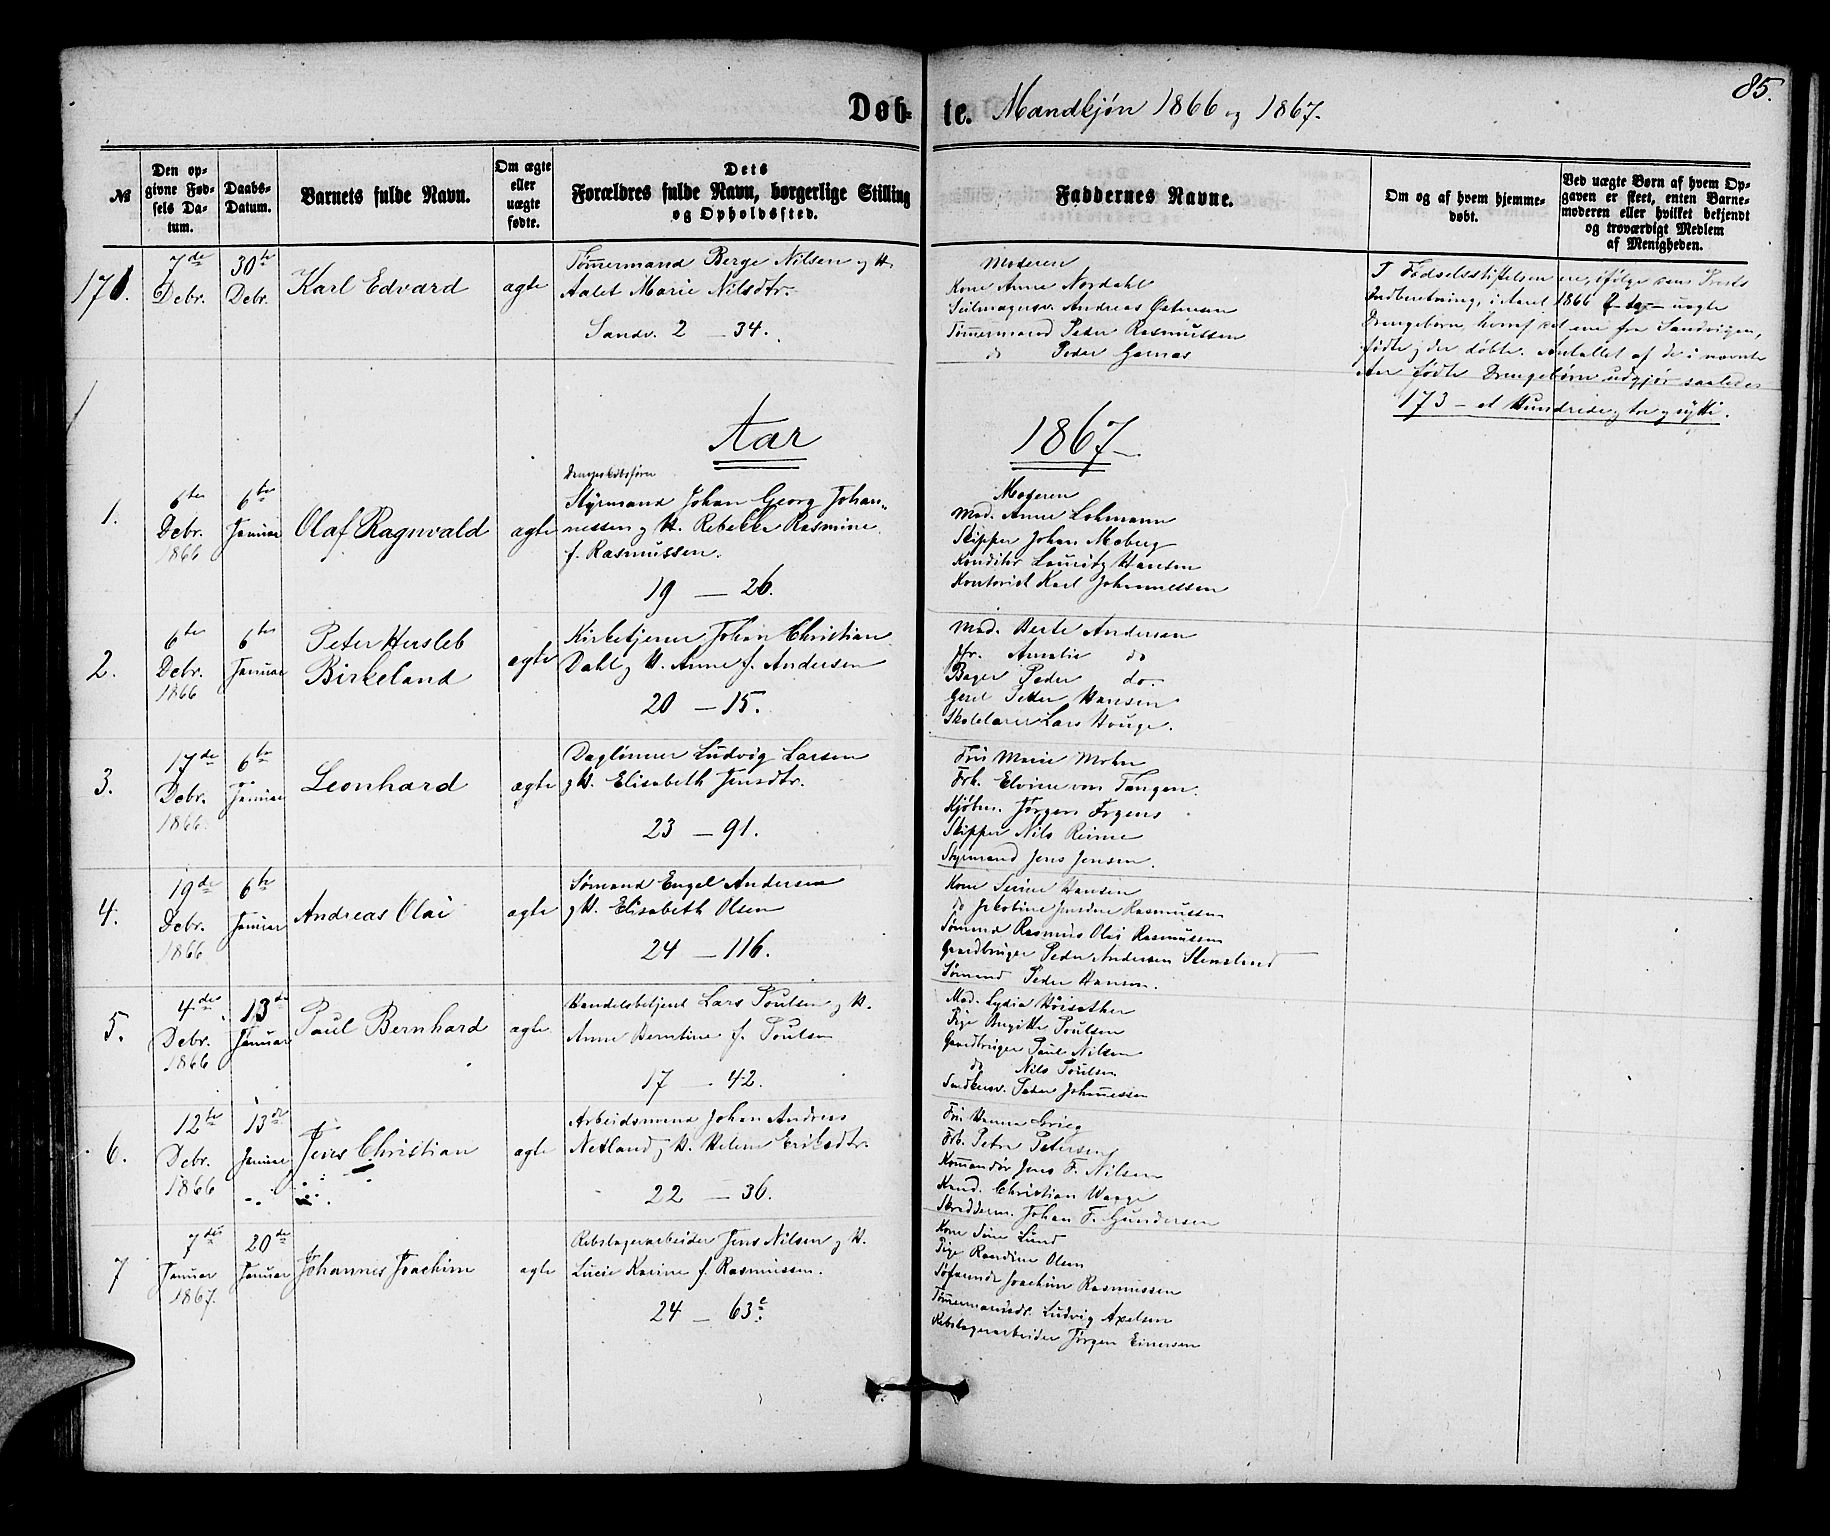 85.
Døb- te. Mandkjøn 1866 og 1867.
№
Den opgivne Fødsels Datum.
Daabs-Datum.
Barnets fulde Navn.
Om ægte eller uægte fødte.
Dets Forældres fulde Navn, borgerlige Stilling og Opholdssted.
Faddernes Navne.
Om og af hvem hjemmedøbt.
Ved uægte Børn af hvem Opgaven er skeet, enten Barnemoderen eller hvilket bekjendt og troværdigt Medlem af Menigheden.
171.
7de Debr.
30te Debr.
Karl Edvard
ægte
Tømermand Berge Nilsen og H.
Aalet Marie Nilsdtr.
Sandv. 2 - 34.
Moderen
Kone Anne Nordahl
Seilmagersv. Andreas Ostensen
Tømermand Peder Rasmussen
do Peder Garnas
I Fødselsstiftelsen ere, ifølge dens Prests
Indberetning, i Aaret 1866 2 - to - uægte
Drengebørn, hvoraf det ene fra Sandvigen,
fødte og der døbte. Antallet af de i nævnte
Aar fødte Drengebørn udgjør saaledes
173 - et Hundrede og tre og sytti.
Aar 1867
1.
6te Debr. 1866
6te Januar
Olaf Ragnvald
ægte
Styrmand Johan Georg Johan-
nessen og H. Rebekka Rasmine
f. Rasmussen.
19 - 26.
Moderen
Mad. Anne Lohmann
Skipper Johan Moberg
Konditor Lauritz Hansen
Kontorist Karl Johannessen
2.
6te Debr. 1866
6te Januar
Peter Hersleb
Birkeland
ægte
Kirketjener Johan Christian
Dahl og H. Anne f. Andersen
20 - 15.
Mad. Berte Andersen
Jfr. Amalie do
Bager Peder do.
Gesel Peder Hansen
Skolelærer Lars Houge.
3.
17de Debr. 1866.
6te Januar
Leonhard
ægte
Dagløner Ludvig Larsen
og H. Elisabeth Jensdtr.
23 - 91.
Fru Marie Mohn
Frk. Elvine von Tangen.
Kjøbm. Jørgen Irgens
Skipper Nils Reime
Styrmand Jens Jensen.
4.
19de Debr. 1866
6te Januar
Andreas Olai
ægte
Sømand Engel Andersen
og H. Elisabeth Olsen
24 - 116.
Kone Serine Hansen
do Jakobine Jensine Rasmussen
Sømand Rasmus Olai Rasmussen
Gaardbruger Peder Andersen Stensland
Sømand Peder Hansen.
5.
4de Debr. 1866
13de Januar
Paul Bernhard
ægte
Handelsbetjent Lars Poulsen og H.
Anne Berntine f. Poulsen
17 - 42.
Mad. Lydia Høisæther
Pige Birgitte Poulsen
Gaardbruger Paul Nilsen
do Nils Poulsen
Peder Johannessen
6.
12te Debr. 1866
13de Januar
Jens Christian
ægte
Arbeidsmand Johan Andreas
Netland og H. Helene Eriksdtr.
22 - 36.
Fru Hanna Grieg
Frk. Petra Petersen
Komandør Jens F. Nilsen
Kand. Christian Waage
Skredderm. Johan F. Gundersen
7
7de Januar 1867.
20de Januar
Johannes Joachim
ægte
Rebslagerarbeider Jens Nilsen og H.
Lucie Karine f. Rasmussen.
24 - 63c.
Kone Sine Lund
Pige Randine Olsen
Joachim Rasmussen
Ludvig Axelsen
Rebslagerarbeider Jørgen Einersen